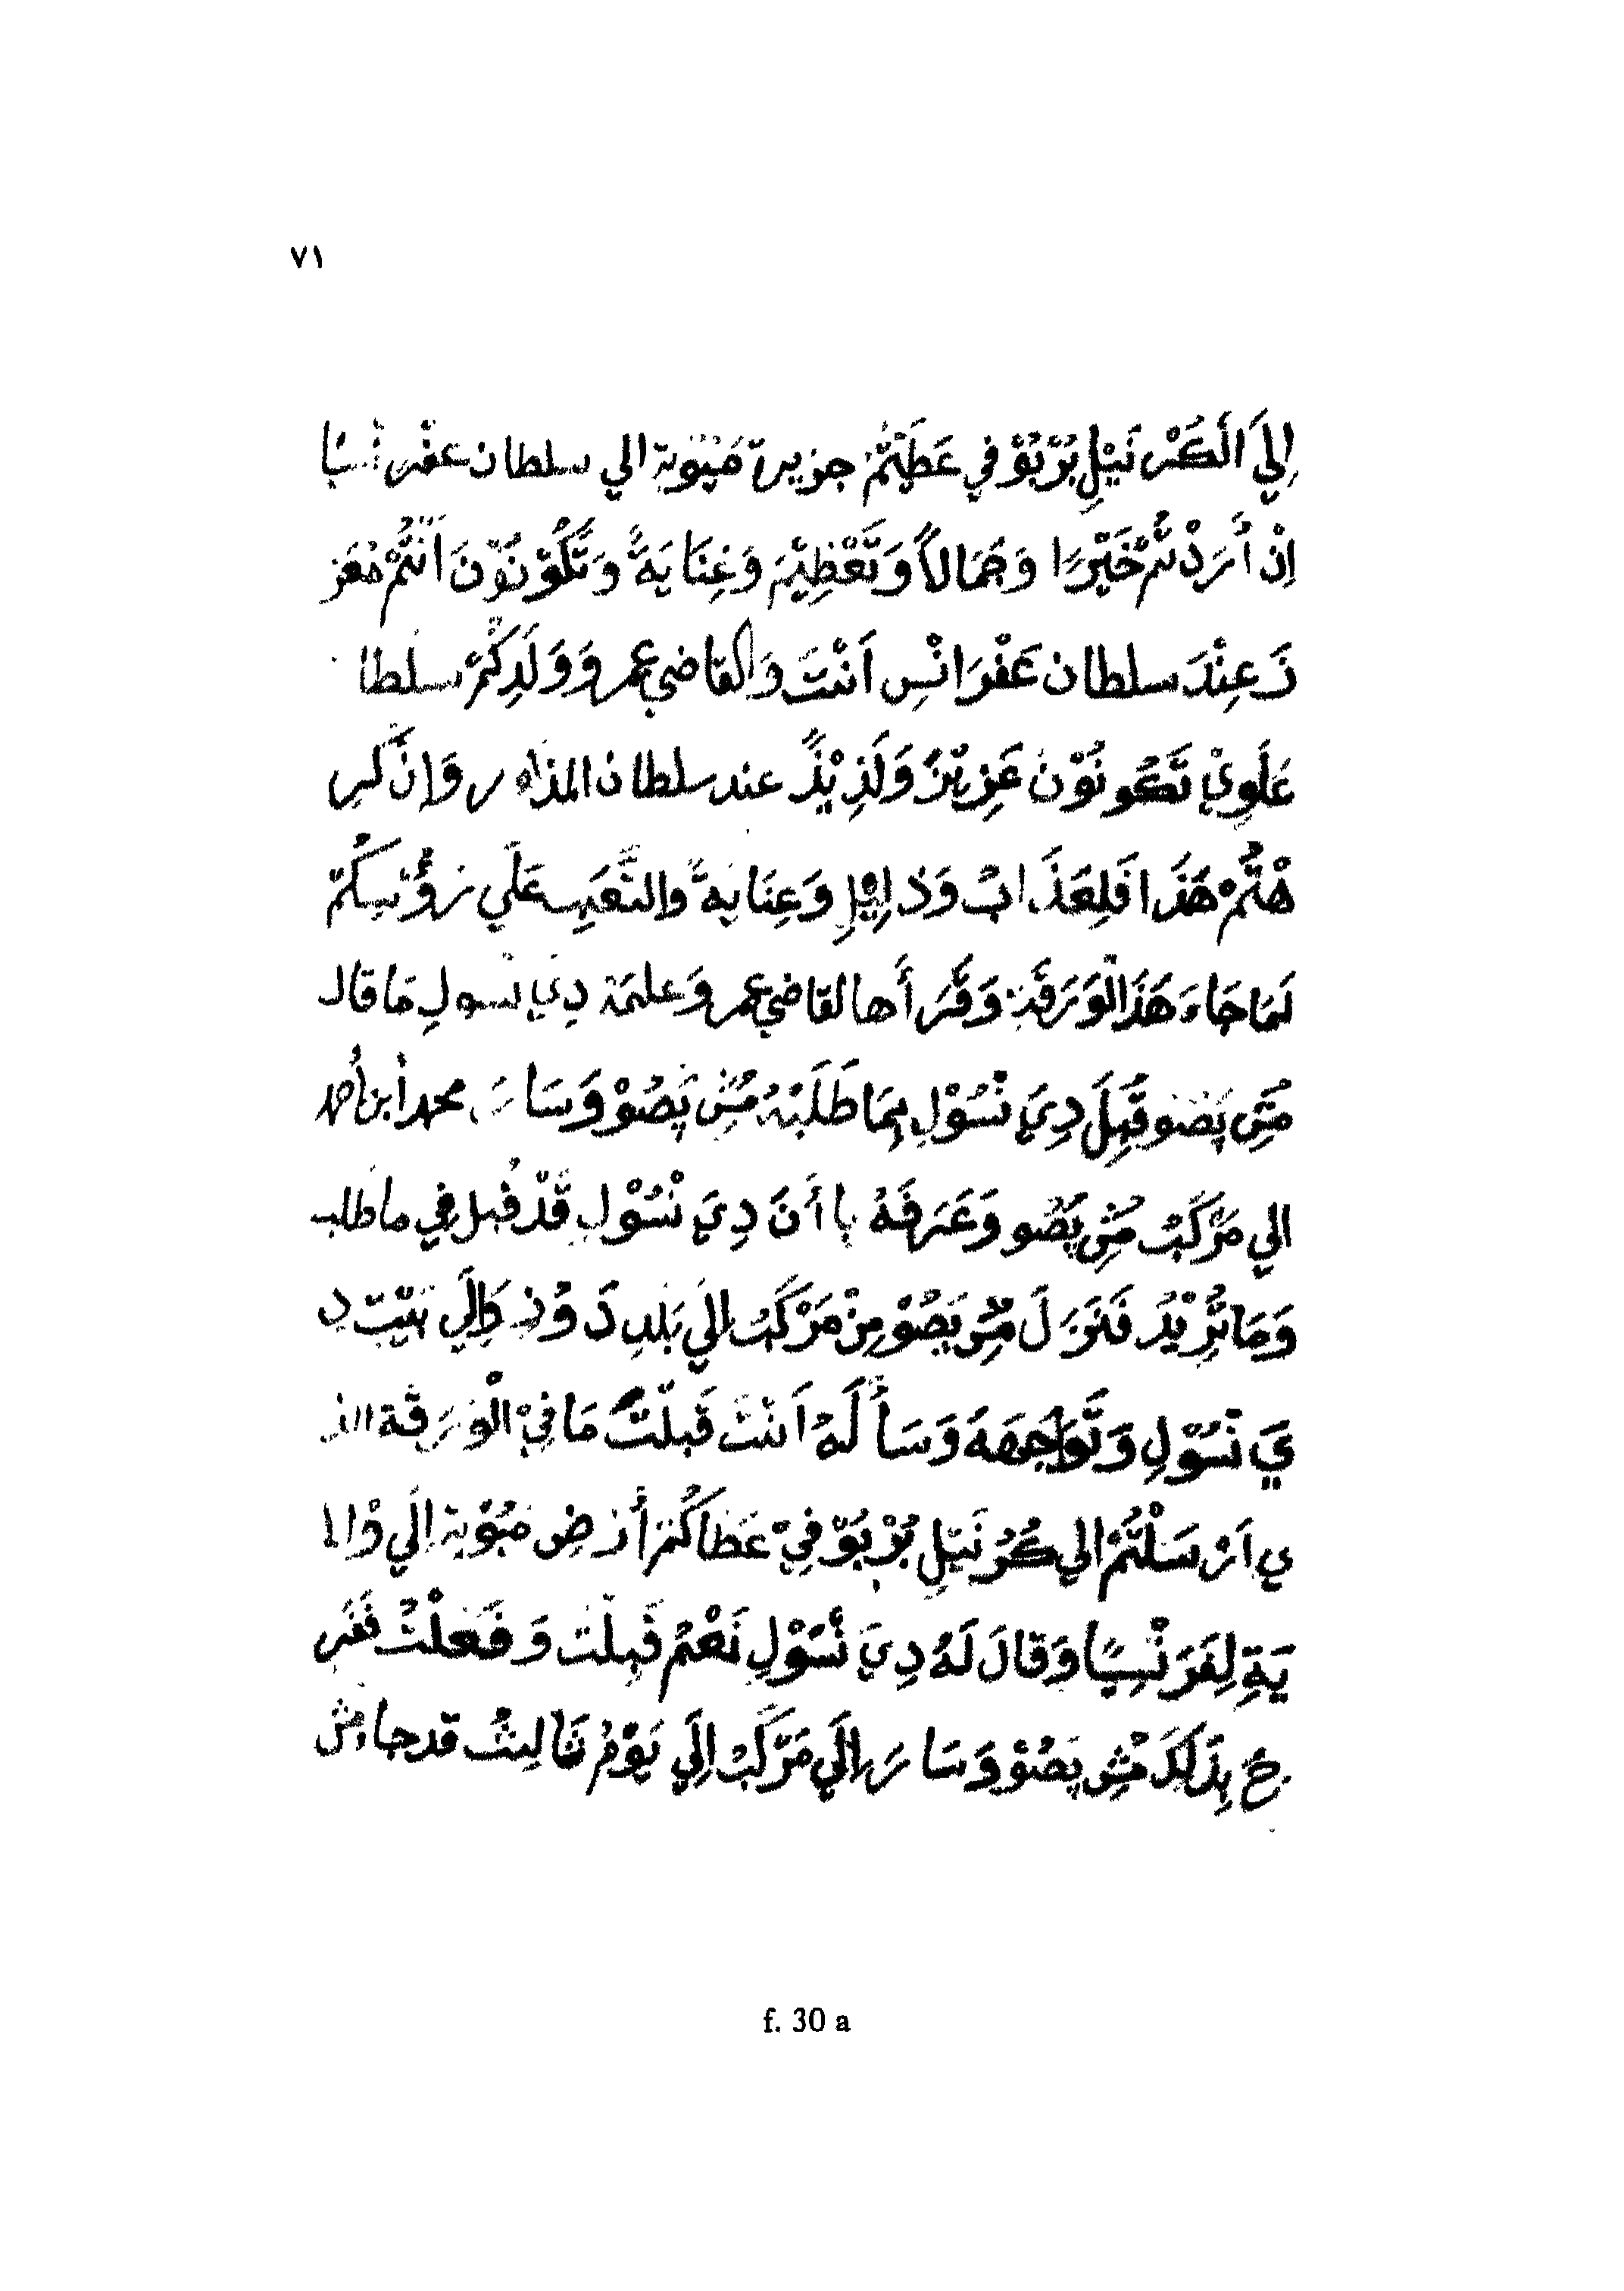 ٧١
إِلَيَ الْكَرْنَيْلِ بُرْبُوْ فِي عَطَيْتُمْ جزيرة مَيُوْتِة الي سلطان عفْرنْسِيًا
اِنْ أُرَدْتُمْ خَيْرًا وَجَمَالاً وَتَّعْظِيْمَ وَعِنَايَةً وَتَّكُوْنُوْنَ اَنْتُمْ مُعَز
زَ عِنْدَ سلطان عَفْرَانْسِ اَنْتَ وَالقاضي عمر وَوَلَدِكُمْ سلطا
عَلَوِيْ تَّكُونُوْنَ عَزِيْزً وَلَذِيْذً عند سلطان المذاور وَإِنْ كَرِ
هْتُمْ هَذَا فَلِعَذَابْ وَدَلِيْلِ وَعِنَايةً والتَّعَبِ عَلَي رَؤُسِكُمْ
لَمَا جَاءَ هَذَا لْوَرَقَةِ وَقَرَأَها القاضي عمر وَعلمَة دِيَ نْسولِ مَا قال
مَشِ پَصُو قَبِلَ دِيَ نْسُوْلِ بِمَا طَلَبْهُ مُشِ پَصُوْ وَسَارَ محمد أبن أحمد
الي مَرْكَبْ مُشِ پَصُو وَعَرَفَهُ بِاأَنَ دِيَ نْسُوْلِ قَدْ قُبل فِي ما طلب
وَمَا يُرِيْدُ فَنَزَلَ مُشِ پَصُوْ مِنْ مَرْكَبْ الَيِ بَلدِ دَوُنِ وَإِلَي بَيْتِ دِ
يَ نْسُوْلِ وَتَّوَاجَهَهَ وَسَأَلَهُ اَنْتَ قَبلْتَ مَا فِيْ الْوَرَقَة الذ
ي اَرْسَلْتُمْ الي كُرْنَيْلِ بُرْبُوْ فِيْ عَطَاكُمْ أرْضِ مَيُوْتِة اِلَي وْالا
يَةِ لِفَرَنْسِيًا وَقَالَ لَهُ دِيَ نْسُوْلِ نَعْمْ قَبِلْت وَفَعَلْتْ فَفَرِ
حَ بِذَلِكَ مُشِ پَصُوْ وَسَارَ اِلَي مَرْكَبْ اِلَي يَوْمُ ثَالِثْ قد جا مش
f. 30 a